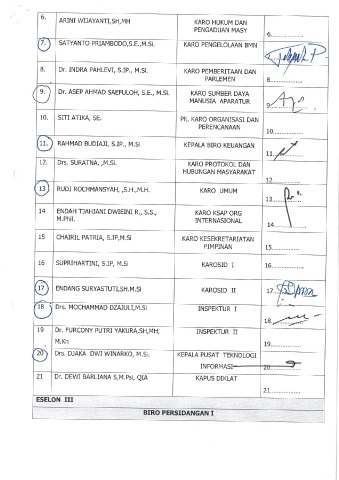 6. ARINI WIJAYANTI,SH,MH KARO HUKUM DAN 
PENGADUAN MASY 6
7. SATYANTO PRIAMBODO,S.E.,M.Si. KARO PENGELOLAAN BMN
8. Dr. INDRA PAHLEVI, S.IP., M.Si. KARO PEMBERITAAN DAN
PARLEMEN 8
9. Dr. ASEP AHMAD SAEFULOH, S.E., M.Si. KARO SUMBER DAYA
MANUSIA APARATUR 9
10. SITI ATIKA, SE. Plt. KARO ORGANISASI DAN
PERENCANAAN 10
11. RAHMAD BUDIAJI, S.IP., M.Si KEPALA BIRO KEUANGAN 11
12. Drs. SURATNA, ,M.Si. KARO PROTOKOL DAN
HUBUNGAN MASYARAKAT 12
13 RUDI ROCHMANSYAH, ,S.H.,M.H. KARO UMUM 13
14 ENDAH TJAHJANI DWIEINI R., S.S.,
M.Phil. KARO KSAP ORG
INTERNASIONAL 14
15 CHAIRIL PATRIA, S.IP,M.Si KARO KESEKRETARIATAN
PIMPINAN 15
16 SUPRIHARTINI, S.IP, M.Si KAROSID I 16
17 ENDANG SURYASTUTI,SH.M.Si KAROSID II 17
18 Drs. MOCHAMMAD DZAJULI,M.Si INSPEKTUR I 18
19 Dr. FURCONY PUTRI YAKURA,SH,MH,
M.Kn INSPEKTUR II 19
20 Drs. DJAKA DWI WINARKO, M.Si. KEPALA PUSAT TEKNOLOGI
INFORMASI 20
21 Dr. DEWI BARLIANA S,M.Psi, QIA KAPUS DIKLAT 21
ESELON III
BIRO PERSIDANGAN I